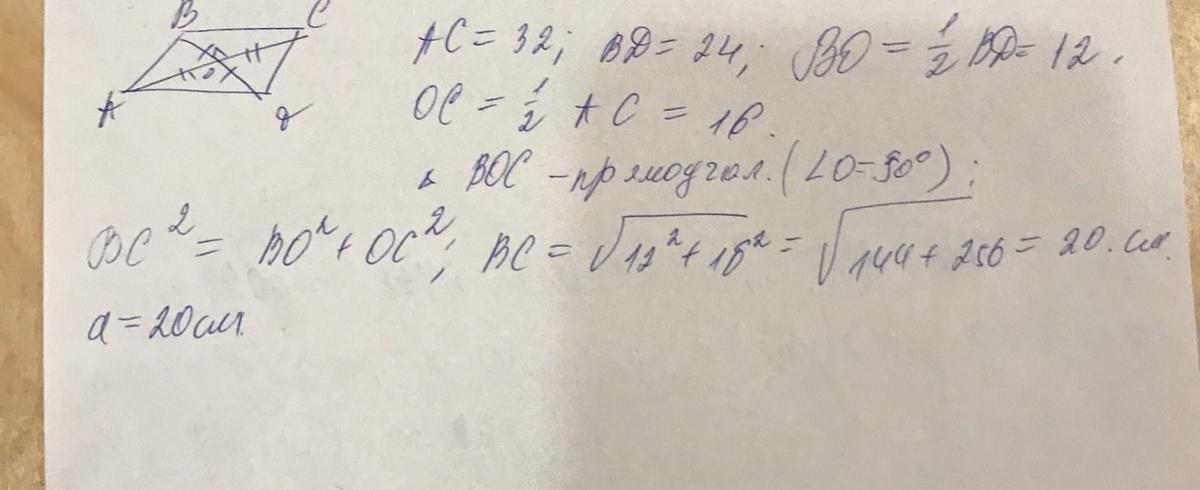 B C
AC = 32; BD = 24; BO = 1/2 BD = 12.
A O D
OC = 1/2 AC = 16.
Δ BOC - прямоугол. (∠O=90°);
BC² = BO² + OC²; BC = √12² + 16² = √144 + 256 = 20. см.
a = 20 см